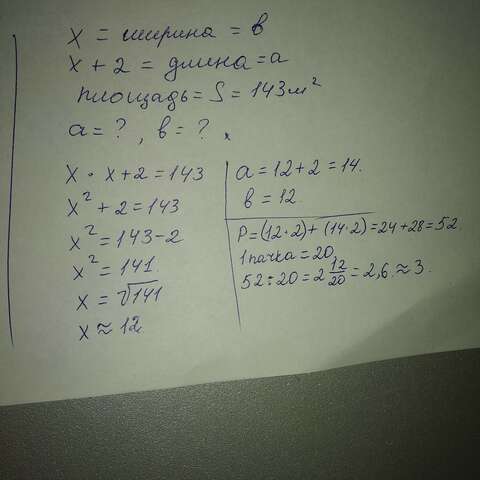 x = ширина = в
x + 2 = длина = а
площадь = S = 143 м²
а = ? , в = ? .
x · x + 2 = 143
x² + 2 = 143
x² = 143 - 2
x² = 141.
x = √141
x ≈ 12.
а = 12 + 2 = 14.
в = 12.
P = (12 · 2) + (14 · 2) = 24 + 28 = 52.
1 пачка = 20.
52 ÷ 20 = 2 12/20 = 2,6. ≈ 3.